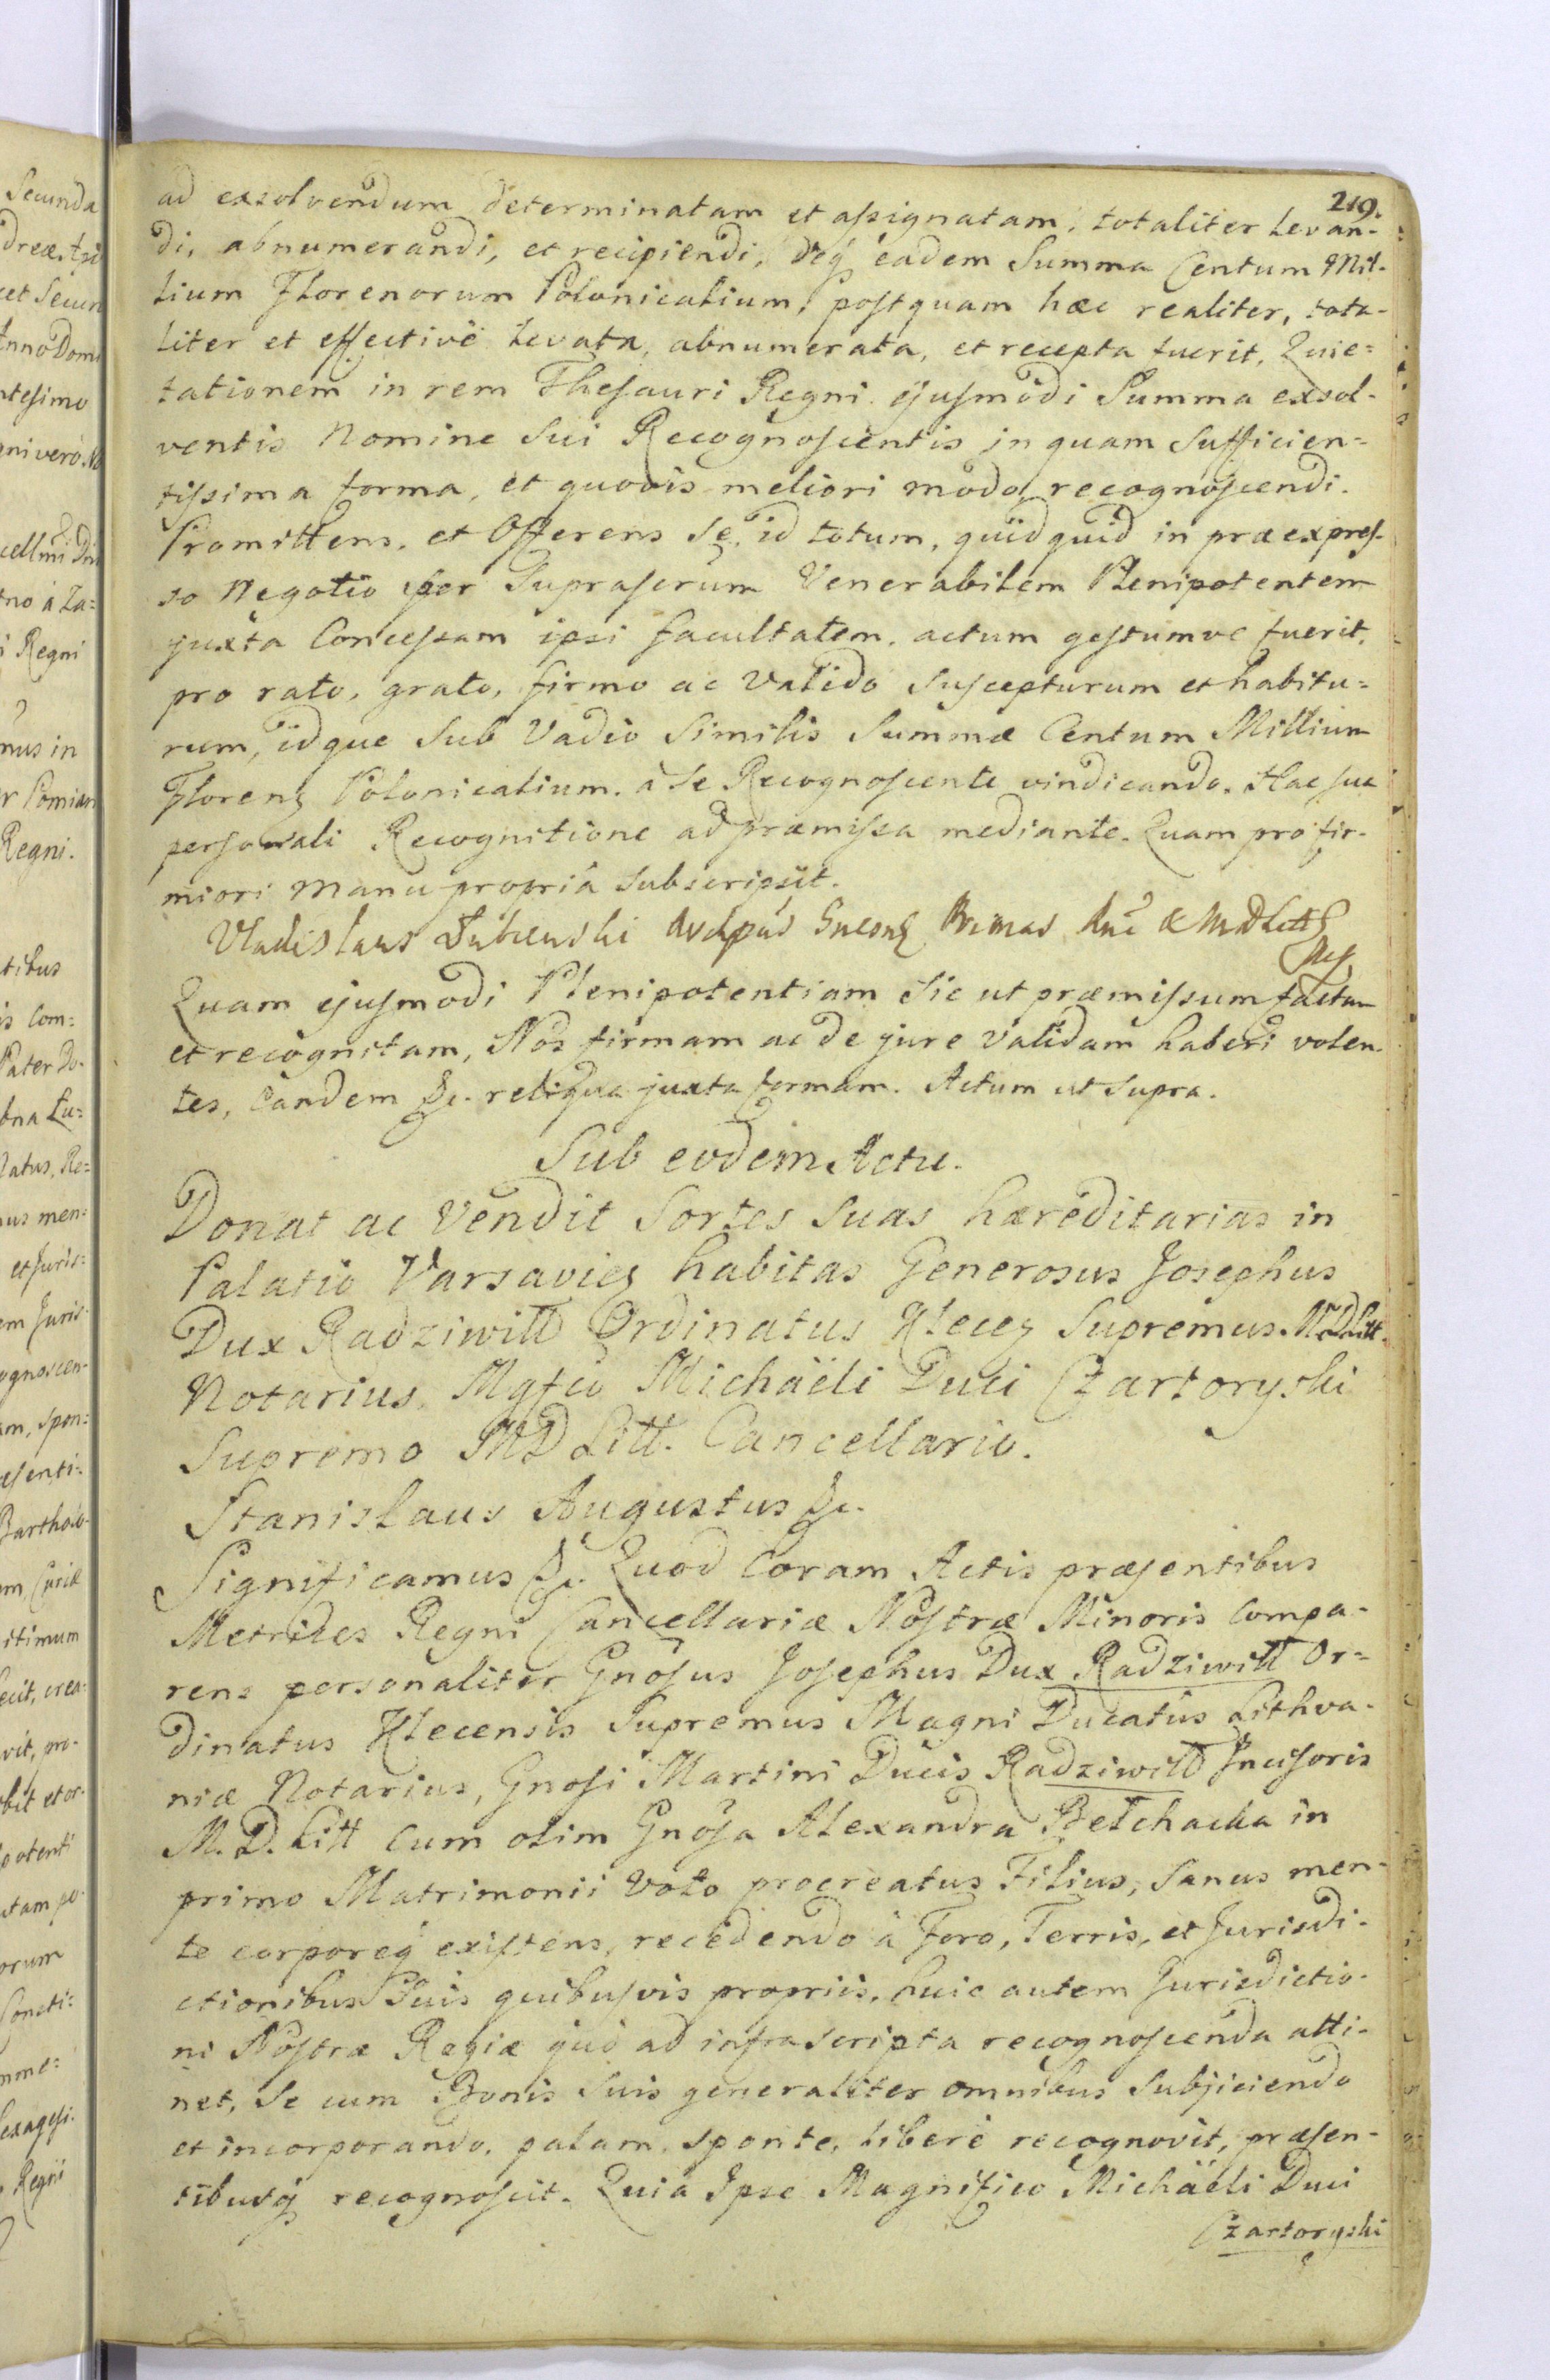 219.
ad exsolvendum determinatam et assignatam, totaliter levan-
di, abnumerandi, et recipiendi, deq́ eadem Summa Centum Mil-
lium Florenorum Polonicalium, postquam hæc realiter, tota-
liter et effectivè levata, abnumerata, et recepta fuerit, Quie=
tationem in rem Thesauri Regni ejusmodi Summa exsol-
ventis Nomine Sui Recognoscentis in quam Sufficien=
tissima forma, et quovis meliori modo recognoscendi.
Promittens, et Offerens Se, id totum, quidquid in præexpres-
so Negotio per Suprascrûm Venerabilem Plenipotentem
juxta Concessam ipsi facultatem, actum gestumve fuerit,
pro rato, grato, firmo ac Valido Suscepturum et habitu=
rum, idque Sub Vadio Similis Summæ Centum Millium
Floren Polonicalium, à Se Recognoscente vindicando. Hac sua
personali Recognitione ad præmissa mediante. Quam pro fir-
miori manu propriâ Subscripsit.
Vladislaus Łubienski Primas
Quam ejusmodi Plenipotentiam Sic ut præmissum factam
et recognitam, Nos firmam ac de jure Validam haberi volen-
tes, eandem &c. reliqua juxta formam. Actum ut Supra.
Sub eodem Actu.
Donat ac Vendit Sortes Suas hæreditarias in
Palatio Varsavien habitas Generosus Josephus
Dux Radziwiłł Ordinatus Klecen Supremus M.D.Litt.
Notarius, Mgfco Michaëli Duci Czartoryski
Supremo MD Litt. Cancellario.
Stanislaus Augustus &c.
Significamus &c. Quod Coram Actis præsentibus
Metrices Regni Cancellariæ Nostræ Minoris Compa-
rens personaliter Gnosus Josephus Dux Radziwiłł Or=
dinatus Klecensis Supremus Magni Ducatûs Lithva-
niæ Notarius, Gnosi Martini Ducis Radziwiłł Incisoris
M.D. Litt Cum olim Gnosa Alexandra Bełchacka in
primo Matrimonii Voto procreatus Filius, Sanus men-
te corporeq́ existens, recedendo à Foro, Terris, et Jurisdi-
ctionibus Suis quibusvis propriis, huic autem Jurisdictio-
ni Nostræ Regiæ quò ad infrascripta recognoscenda atti-
net, Se cum Bonis Suis generaliter omnibus Subjiciendo
et incorporando, palam, sponte, liberè recognovit, præsen-
tibusq́ recognoscit. Quia Ipse Magnifico Michäeli Duci
Czartoryski